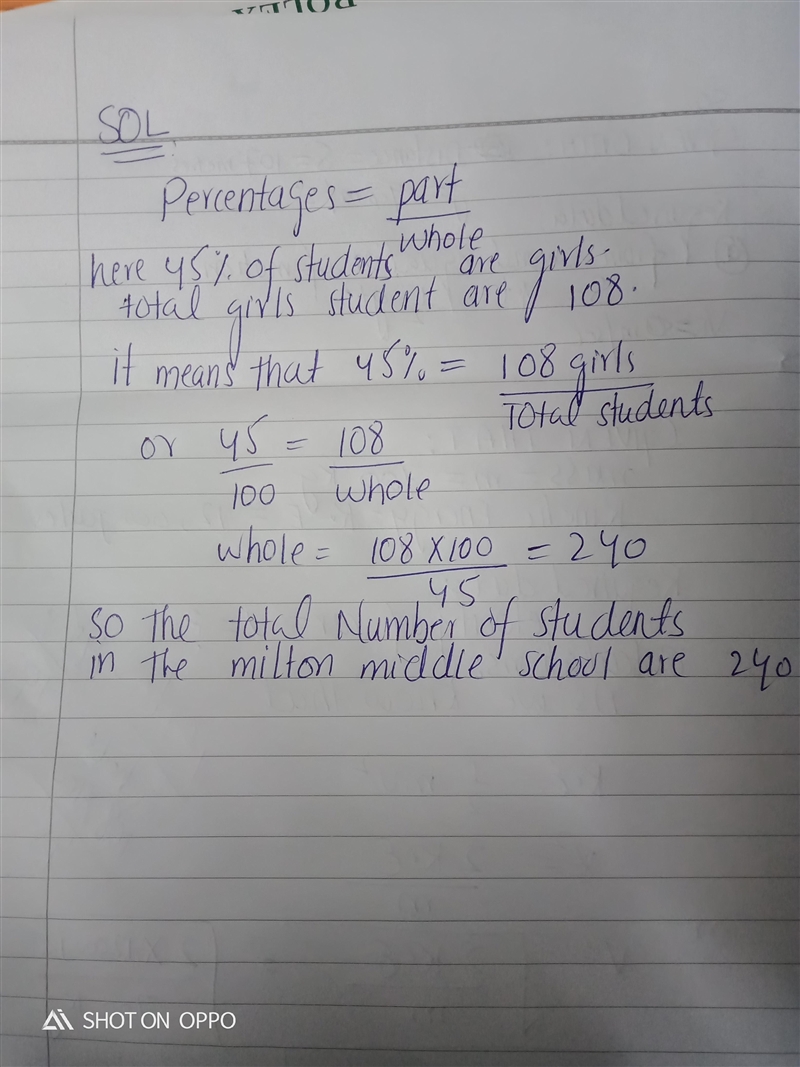 ROLEX
SOL
Percentages = part
whole
here 45% of students are girls.
total girls student are 108.
it means that 45% = 108 girls
Total students
or 45 = 108
100 whole
whole = 108 X 100 = 240
45
so the total Number of students
in the milton middle school are 240
SHOT ON OPPO